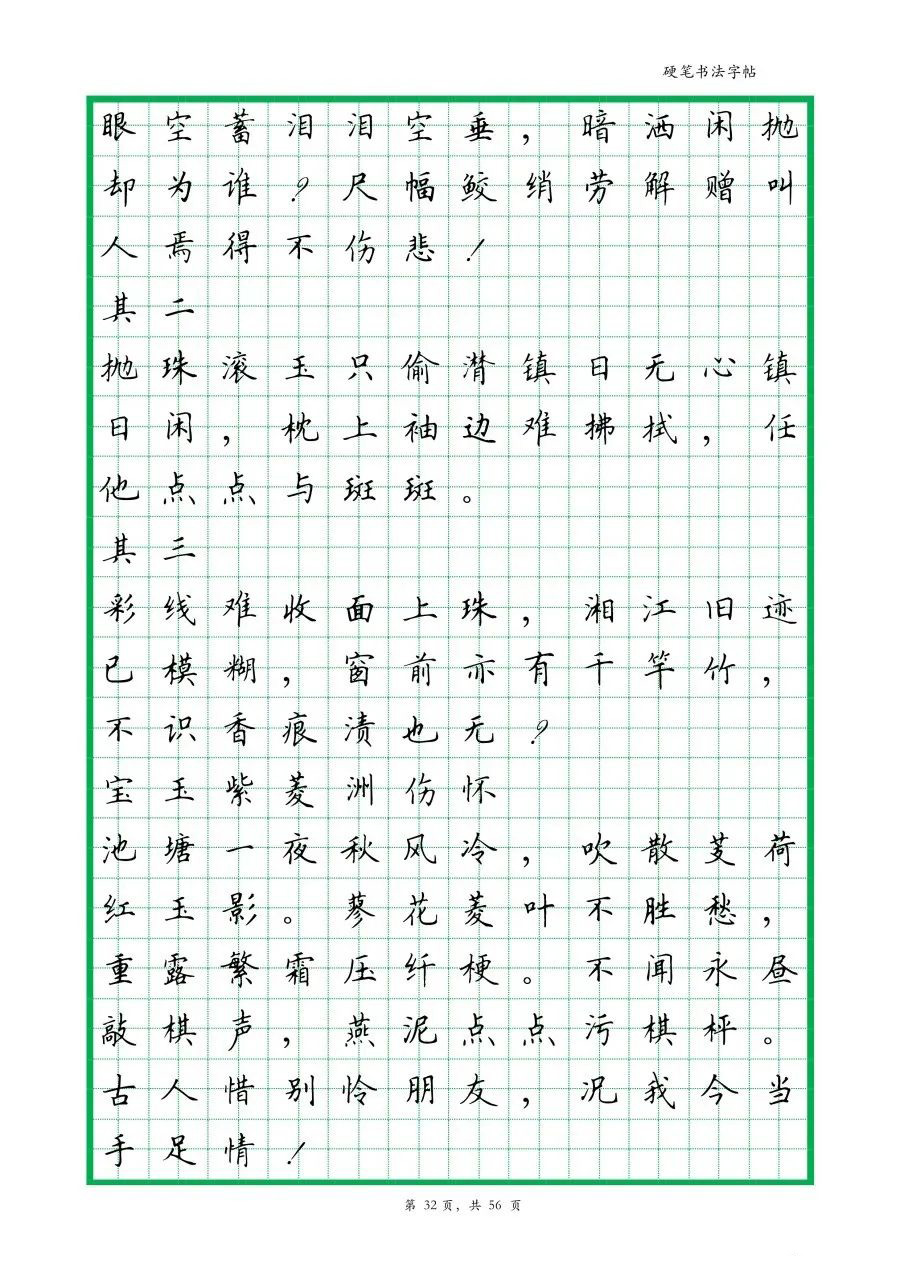 硬笔书法字帖
眼空蓄泪泪空垂，暗洒闲抛
却为谁？尺幅鲛绡劳解赠叫
人焉得不伤悲！
其二
抛珠滚玉只偷潸镇日无心镇
日闲，枕上袖边难拂拭，任
他点点与斑斑。
其三
彩线难收面上珠，湘江旧迹
已模糊，窗前亦有千竿竹，
不识香痕渍也无？
宝玉紫菱洲伤怀
池塘一夜秋风冷，吹散芰荷
红玉影。蓼花菱叶不胜愁，
重露繁霜压纤梗。不闻永昼
敲棋声，燕泥点点污棋枰。
古人惜别怜朋友，况我今当
手足情！
第 32 页，共 56 页